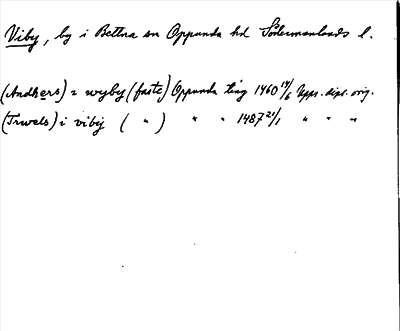 Viby, by i Bettna sn Oppunda hd Södermanlands l.
(Andhers) i wyby (faste) Oppunda ting 1460 14/6 Upps. dipl. orig.
(Truwels) i vibij ( " ) " " 1487 21/1 " " "